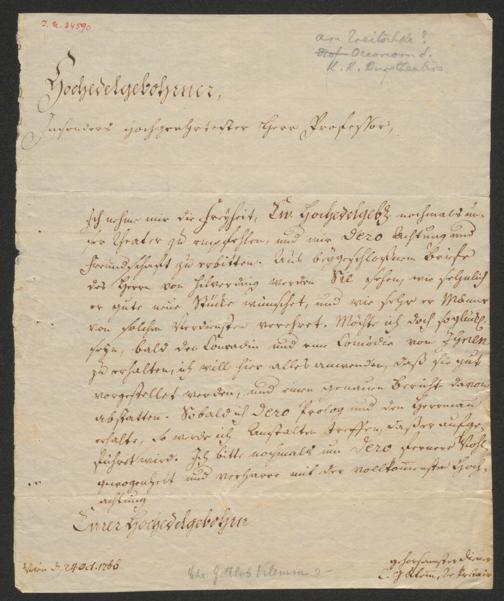 I. N. 34590
An Treitschke?
K. K. Burgtheaters
Hochedelgebohrner,
Insonders hochgeehrtester Herr Professor,
Ich nehme mir die Freyheit, Ew. Hochedelgeb. nochmals un-
ser Theater zu empfehlen, und mir Dero Achtung und
Freundschaft zu erbitten. Aus beygeschloßnem Briefe
des Herrn von Hilverding werden Sie sehen, wie sehnlich
er gute neue Stücke wünschet, und wie sehr er Männer
von solchen Verdiensten verehret. Möchte ich doch so glückl.
seyn, bald den Conradin und eine Comödie von Ihnen
zu erhalten, ich will hier alles anwenden, daß sie gut
vorgestellet werden, und einen genauen Bericht davon
abstatten. Sobald ich Dero Prolog und den Herrman
erhalte, so werde ich Anstalten treffen, daß er aufge-
führet wird. Ich bitte nochmals um Dero fernere Wohl-
gewogenheit und verharre mit der vollkommensten Hoch-
achtung
Eurer Hochedelgebohrn
Wien d. 24 Oct. 1766
gehorsamster Diener
C. G. Klemm, Sekretair
Chr. Gottlob Klemm